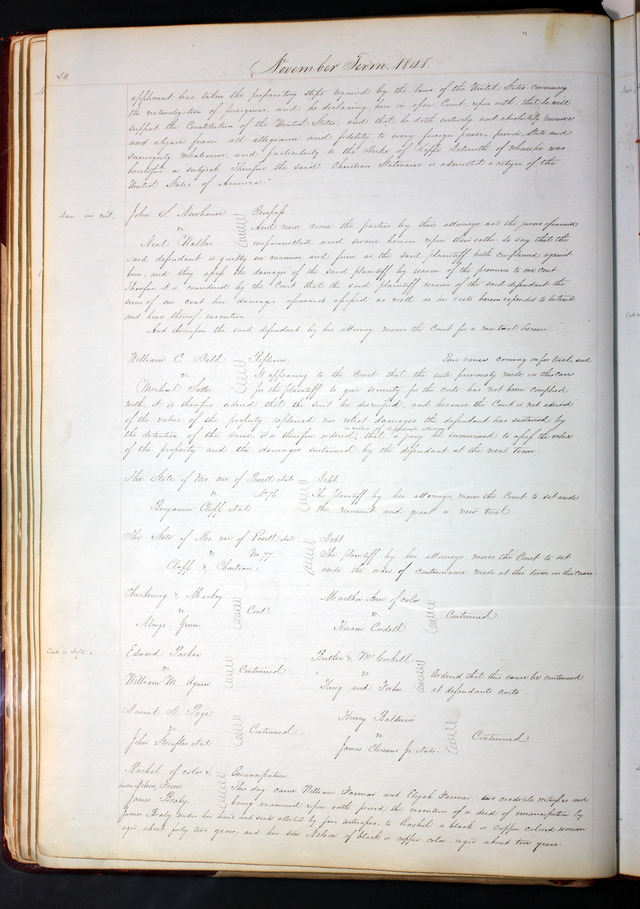 50
November Term, 1848.
applicant has taken the preparatory steps required by the laws of the United States concerning
the naturalization of foreigners, and he declaring here in open Court, upon oath, that he will
support the Constitution of the United States, and that he doth entirely and absolutely renounce
and abjure all allegiance and fidelity to every foreign power, prince, State and
sovereignty whatsoever, and particularly to the of Lippe Detmold of whom he was
heretofore a subject. Therefore the said Christian is admitted a citizen of the
United States of America.
John S.
vs
Neal Walker
Trespass.
And now come the parties by their attorneys and the jurors aforesaid
impannelled and sworn herein upon their oaths do say that the
said defendant is guilty in manner and form as the said plaintiff hath complained against
him, and they assess the damages of the said plaintiff by reason of the premises to one cent.
Therefore it is considered by the Court that the said plaintiff recover of the said defendant the
sum of one cent his damages aforesaid assessed as well as his costs herein expended to be taxed
and have thereof execution.
And thereupon the said defendant by his attorney moves the Court for a new trial herein.
William C.
vs
Michael
Replevin.
This cause coming on for trial, and
It appearing to the Court that the rule previously made in this case
for the plaintiff to give security for the costs has not been complied
with, it is therefore ordered, that the suit be dismissed, and because the Court is not advised
of the value of the property replevied nor what damages the defendant has sustained by
the detention of the same, it is therefore ordered, on motion of defendants attorney that a jury be summoned to assess the value
of the property and the damages sustained by the defendant at the next term.
The State of Mo. use of Powell et al
vs No 76
Benjamin Clapp et al
Debt.
The plaintiff by her attorneys, moves the Court to set aside
the nonsuit and grant a new trial
The State of Mo. use of Powell et al
vs No 77
Clapp &
Debt
The plaintiff by her attorneys moves the Court to set
aside the order of continuance made at this term in this cause.
Chickering & Mackay
vs
Alonzo Green
Cont.
Martha Ann of color
vs
Hiram Cordell
Continued
Costs
Edward Parker
vs
William M. Agnew
Continued.
Butler & McCorkell
vs
King and Fisher
Ordered that this cause be continued
at defendants costs.
Daniel D. Page
vs
John et al
Continued.
Henry Baldwin
vs
James Clemens Jr. et als
Continued
Rachel of color &
Nelson, From
James Brady
Emancipation
This day came William Farmar and Elijah Farmar, two credible witnesses and
being examined upon oath proved the execution of a deed of emancipation by
James Brady under his hand and seal attested by four witnesses, to Rachel a black or copper colored woman
aged about forty two years, and her son Nelson of black or copper color, aged about two years.